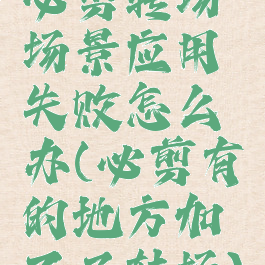 必剪转场
场景应用
失败怎么
办(必剪有
的地方加
不了转场)